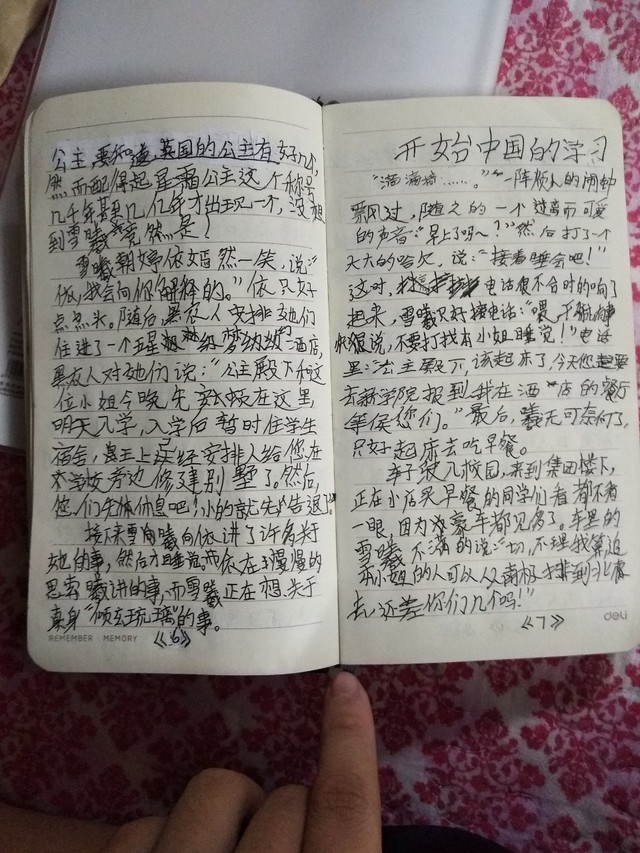 公主,要知道,英国的公主有好几个,
然而配得起星霜公主这个称号
几千年甚至几亿年才出现一个,没想
到雪曦竟然是!
雪曦朝婷依嫣然一笑,说:“
依,我会向你解释的。”依只好
点点头。随后,黑衣人安排她们
住进了一个五星级 酒店,
黑衣人对她们说:“公主殿下和这
位小姐今晚先 在这里,
明天入学,入学后暂时住学生
宿舍,甚王上已经安排人给您在
学校旁边修建别墅了。然后,
您们先休息吧!小的就先告退了。”
接下来雪曦向依讲了许多关于
她的事,然后才睡觉。而依在慢慢的
思索曦讲的事,而雪曦正在想关于
真身“倾玄琉璃”的事。
REMEMBER MEMORY 《6》
开始中国的学习
“滴滴滴……。”一阵烦人的闹钟
飘过,随之的一个 而可爱
的声音:“早上了吗~?”然后打了一个
大大的哈欠,说:“接着睡会吧!”
这时, 电话很不合时的响了
起来,雪曦只好接电话:“喂,干嘛,有事
快说,不要打扰本小姐睡觉!”电话
里:“公主殿下,该起来了,今天您要
去新学院报到,我在酒店的餐厅
等候您们。”最后,曦无可奈何了,
只好起床去吃早餐。
车子驶入校园,来到集团楼下,
正在小店买早餐的同学们看都不看
一眼,因为豪车都见多了。车里的
雪曦不满的说:“切,不理我算了,追
本小姐的人可以从南极排到北极
去,还差你们几个吗!”
《7》 deli